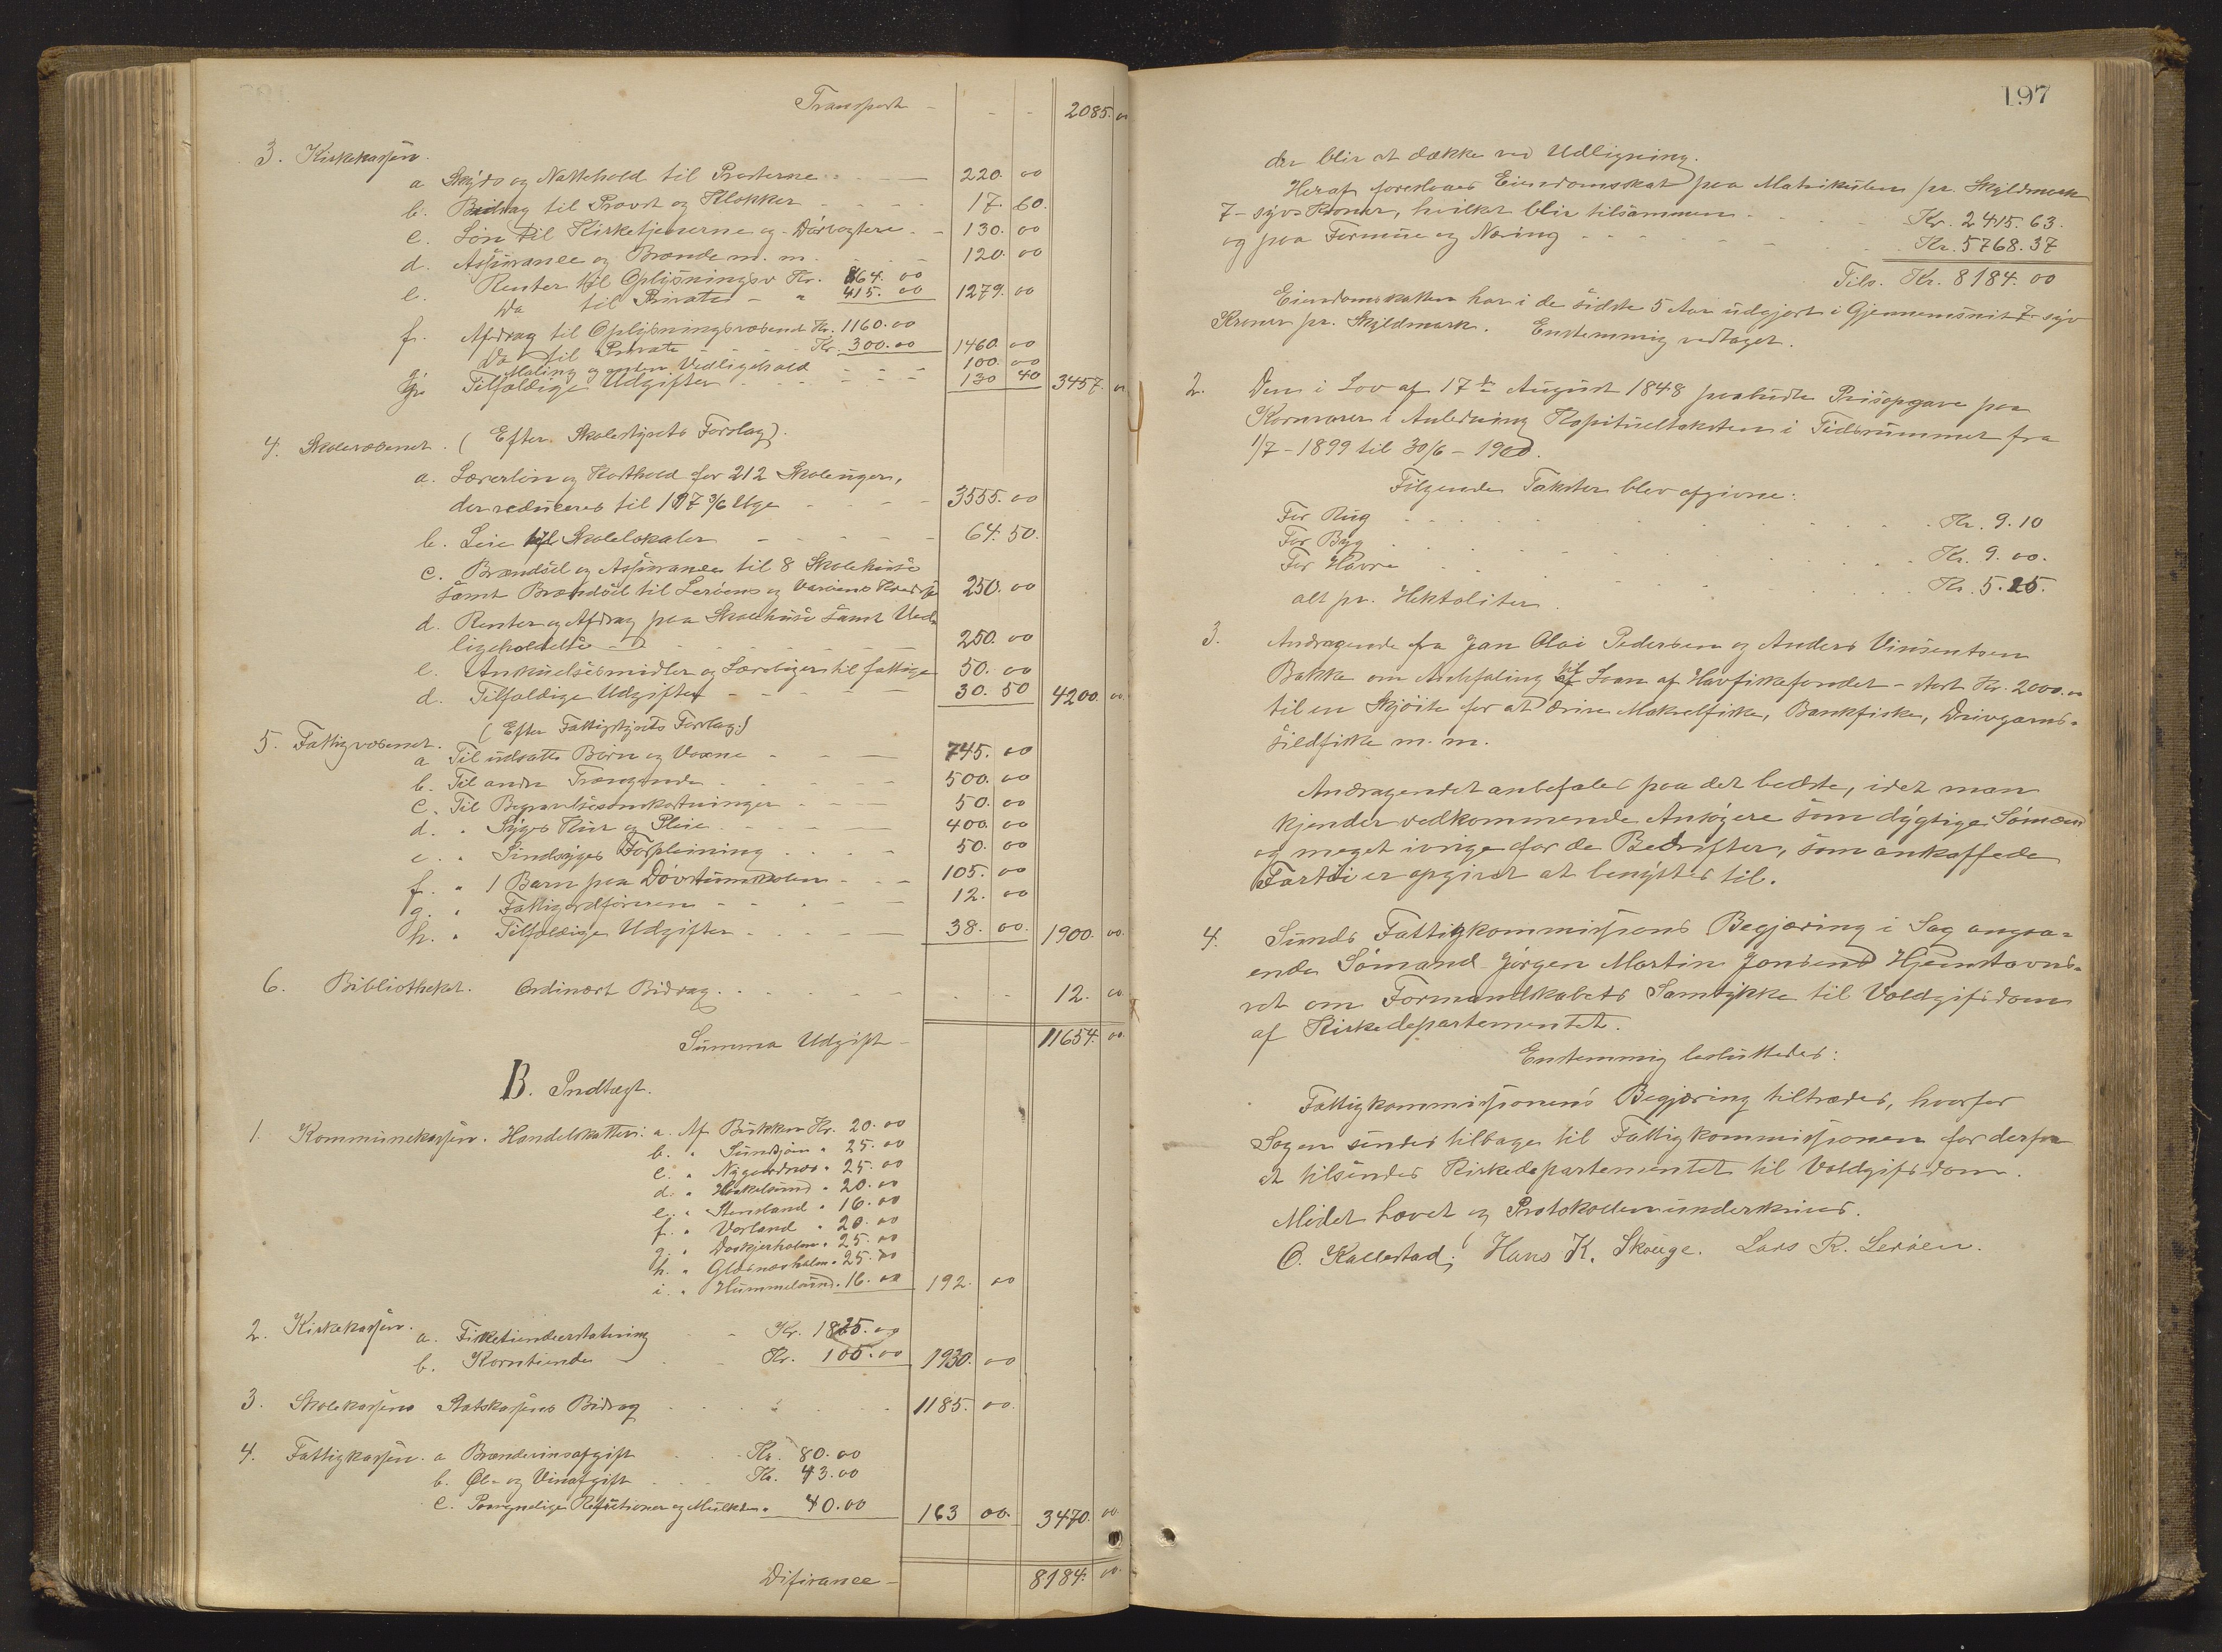 Transport - - - 2085. 00
3. Kirkekassen.
a Skyds og Nattehold til Presterne - 220. 00
b. Bidrag til Provst og Klokker - 17. 60.
c. Løn til Kirketjenerne og Dørvogtere - 130. 00
d. Assurance og Brænde m. m. - 120. 00
e. Renter til Oplysningsv. Kr. 864. 00
Do til Private - " 415. 00 1279. 00
f. Afdrag til Oplysningsvæsenet Kr. 1160. 00
Do til Private - Kr. 300. 00 1460. 00
g. Maling og anden Vedligehold - 100. 00
h. Tilfældige Udgifter - 130 40 3457. 00
4. Skolevæsenet. (Efter Skolestyrets Forslag).
a. Lærerløn og Kosthold for 212 Skoleuger,
der reduceres til 197 3/6 Uge - 3555. 00
b. Leie til Skolelokaler - 64. 50.
c. Brændsel og Assurance til 8 Skolehuse
samt Brændsel til Lerøens og Kredse 250. 00
d. Renter og Afdrag paa Skolehuse samt Ved-
ligeholdelse - 250. 00
e. Anskuelsesmidler og Lærebøger til fattige 50. 00
d. Tilfældige Udgifter - 30. 50 4200. 00
5. Fattigvæsenet. (Efter Fattigstyrets Forslag)
a Til udsatte Børn og Voxne - 745. 00
b. Til andre Trængende - 500. 00
c. Til Begravelsesomkostninger - 50. 00
d. " Syges Kur og Pleie - 400. 00
e. " Sindsyges Forpleining - 50. 00
f. " 1 Barn paa Døvstumskolen - 105. 00
g. " Fattigordføreren - 12. 00
h. " Tilfældige Udgifter - 38. 00. 1900. 00
6. Bibliotheket. Ordinært Bidrag - 12. 00
Summa Udgift - 11654. 00
B. Indtægt.
1. Kommunekassen. Handelskatten: a. Af Bukken Kr. 20. 00
b. " Sundsjøen " 25. 00
c. " Nygaardsnes " 25. 00
d. " Hækelsund " 20. 00
e. " Stensland " 16. 00
f. " Vorland " 20. 00
g. " Doskjerholm " 25. 00
h. " Glesnesholm " 25. 00
i. " Hummelsund " 16. 00 192. 00
2. Kirkekassen. a. Fisketiendeerstatning - Kr. 1825. 00
b. Korntiende - Kr. 105. 00 1930. 00
3. Skolekassens Statskassens Bidrag - 1185. 00
4. Fattigkassen. a Brændevinsafgift - Kr. 80. 00
b. Øl- og Vinafgift - Kr. 43. 00
c. Paaregnelige Refusioner og Mulkter " 40. 00 163 00. 3470. 00
Diferance - 8184. 00
197
der blir at dække ved Udligning.
Heraf foreslaaes Eiendomsskat paa Matrikulen pr. Skyldmark
7 - syv Kroner, hvilket blir tilsammen - Kr. 2415. 63.
og paa Formue og Næring - Kr. 5768. 37
Tils. Kr. 8184. 00
Eiendomsskatten har i de sidste 5 Aar udgjort i Gjennemsnit 7 syv
Kroner pr. Skyldmark. Enstemmig vedtaget.
2. Den i Lov af 17de August 1848 paabudte Prisopgave paa
Kornvarer i Anledning Kapitueltaksten i Tidsrummet fra
1/7 - 1899 til 30/6 - 1900.
Følgende Takster blev afgivne:
For Rug - Kr. 9. 10
For Byg - Kr. 9. 00.
For Havre - Kr. 5. 25.
alt pr. Hektoliter.
3. Andragende fra Jan Olai Pedersen og Anders Vinsentsen
Bakke om Anbefaling til Laan af Havfiskefondet - stort Kr. 2000. 00
til en Skjøite for at drive Makrelfiske, Bankfiske, Drivgarns-
sildfiske m. m.
Andragendet anbefales paa det bedste, idet man
kjender vedkommende Ansøgere som dygtige Sømænd
og meget ivrige for de Bedrifter, som anskaffede
Fartøi er opgivet at benyttes til.
4. Sunds Fattigkommissions Begjæring i Sag angaa-
ende Sømand Jørgen Martin Jonsens Hjemstavns-
ret om Formandskabets Samtykke til Voldgiftsdom
af Kirkedepartementet.
Enstemmig besluttedes:
Fattigkommissionens Begjæring tiltrædes, hvorfor
Sagen sendes tilbage til Fattigkommissionen for derfra
at tilsendes Kirkedepartementet til Voldgiftsdom.
Mødet hævet og Protokollen underskrives.
O. Kallestad, Hans K. Skouge. Lars R. Lerøen.